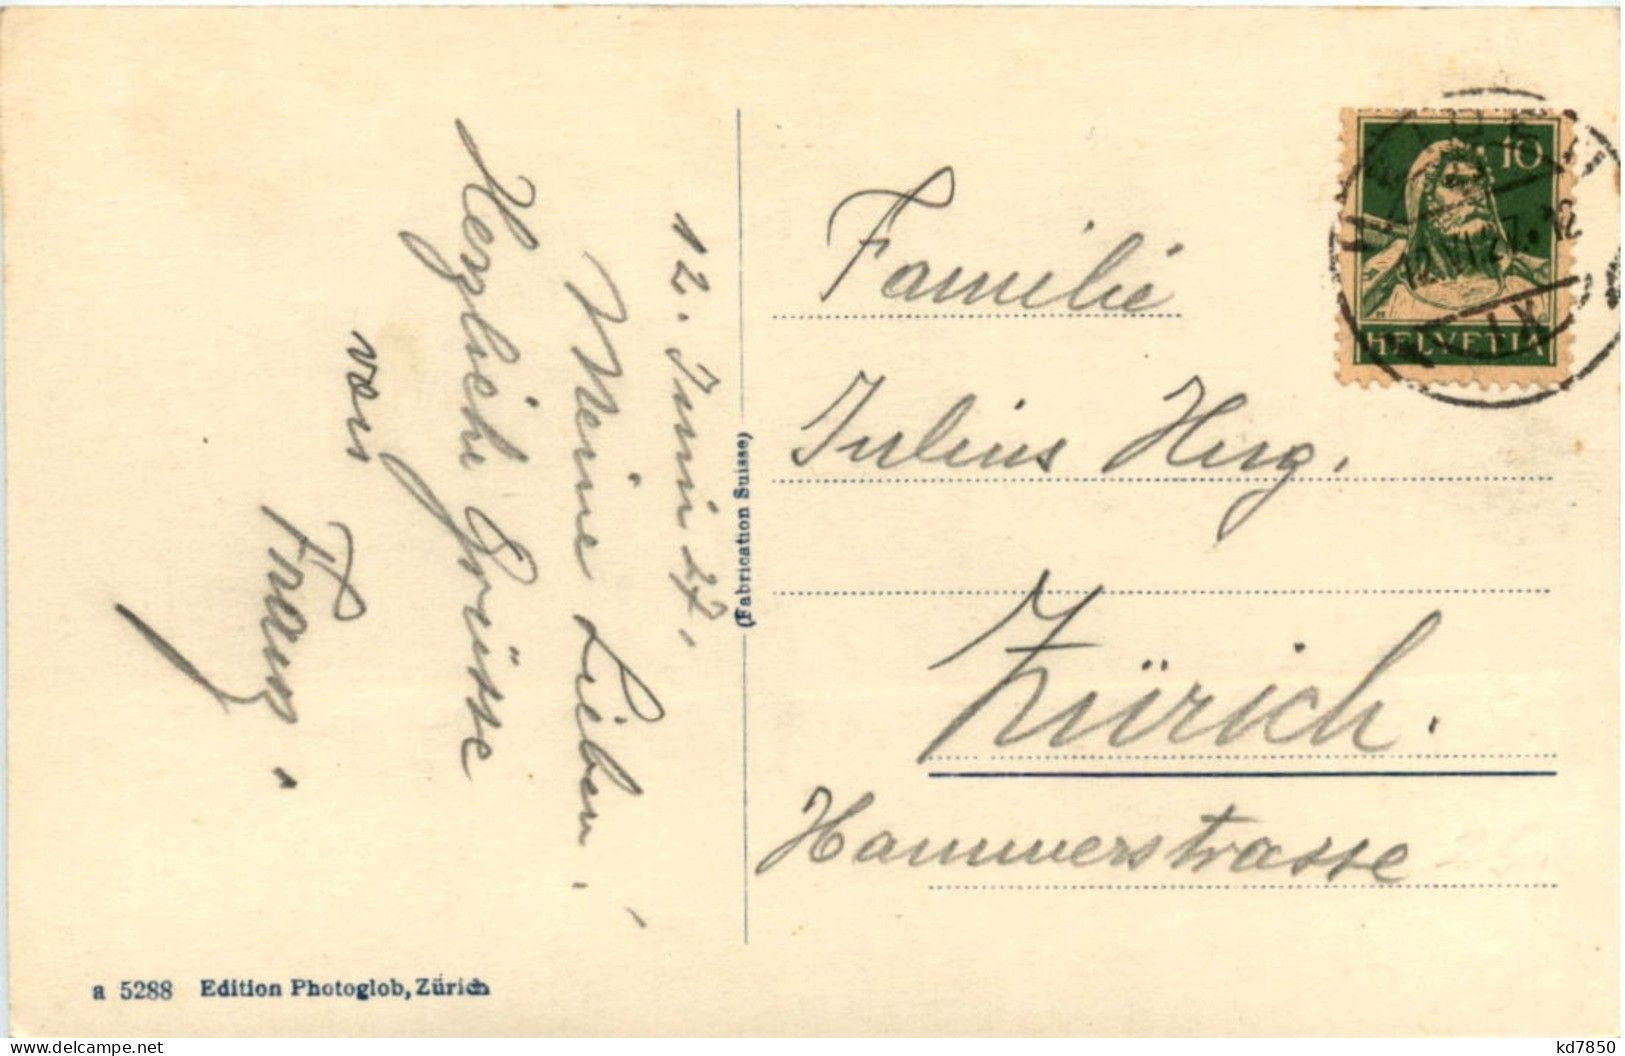 12. Juni 27.
Meine Lieben!
Herzliche Grüsse
von
Franz.
Familie
Julius Hug.
Zürich.
Hammerstrasse
(Fabrication Suisse)
a 5288 Edition Photoglob, Zürich
10
HELVETIA
12.VI.27.12
IX
delcampe.net
kd7850